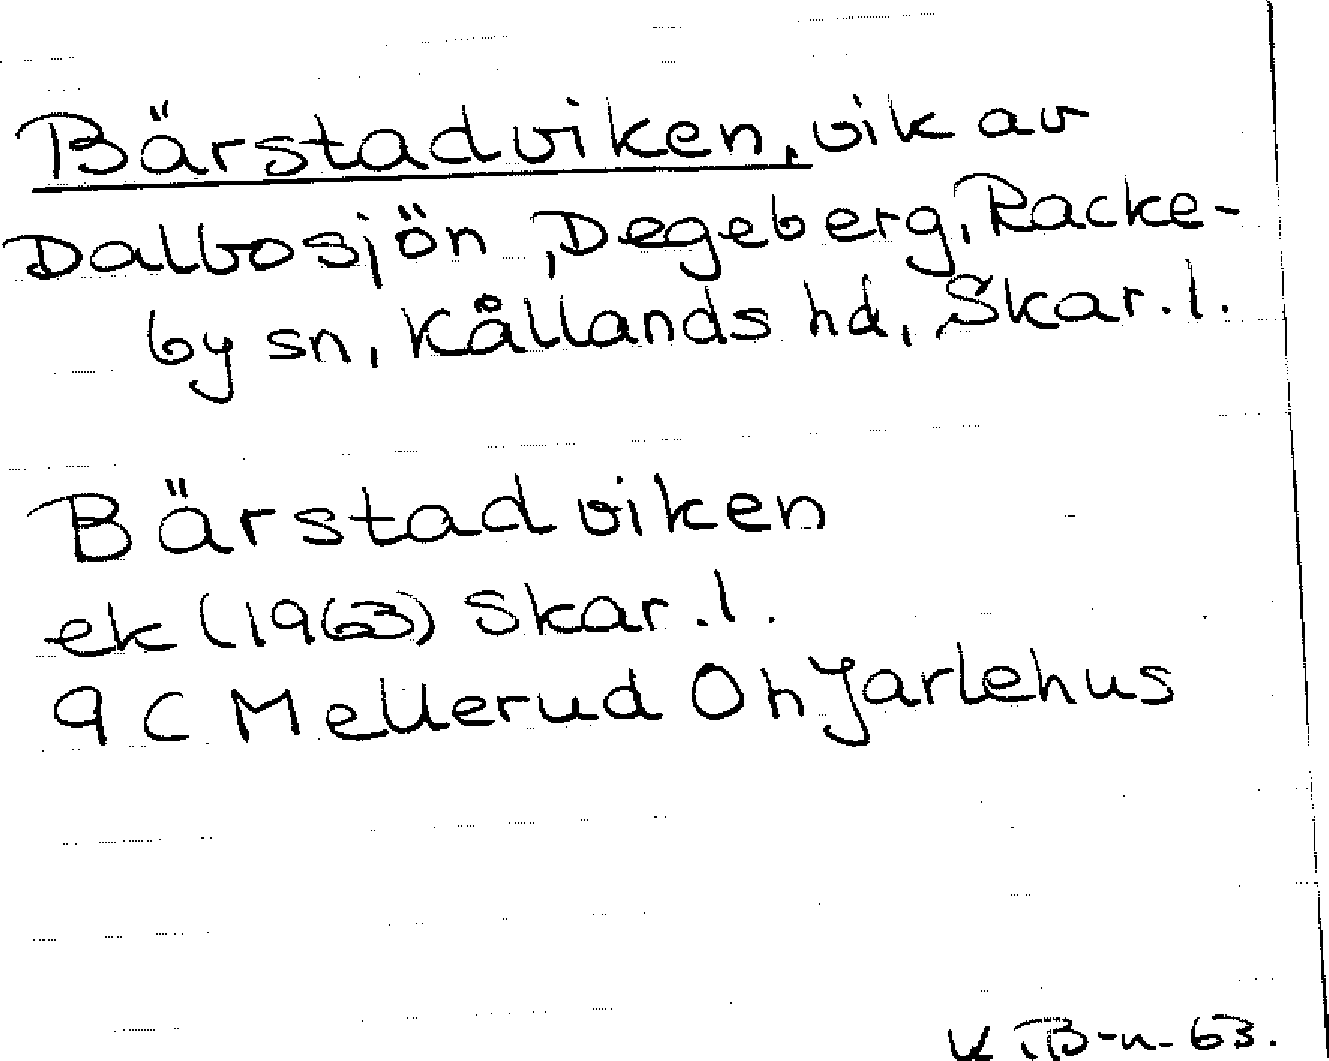 Bärstadviken, vik av
Dalbosjön, Degeberg, Racke-
by sn, Kållands hd, Skar. l.
Bärstadviken
ek (1963) Skar. l.
9 C Mellerud Ö h Jarlehus
K B-n- 63.